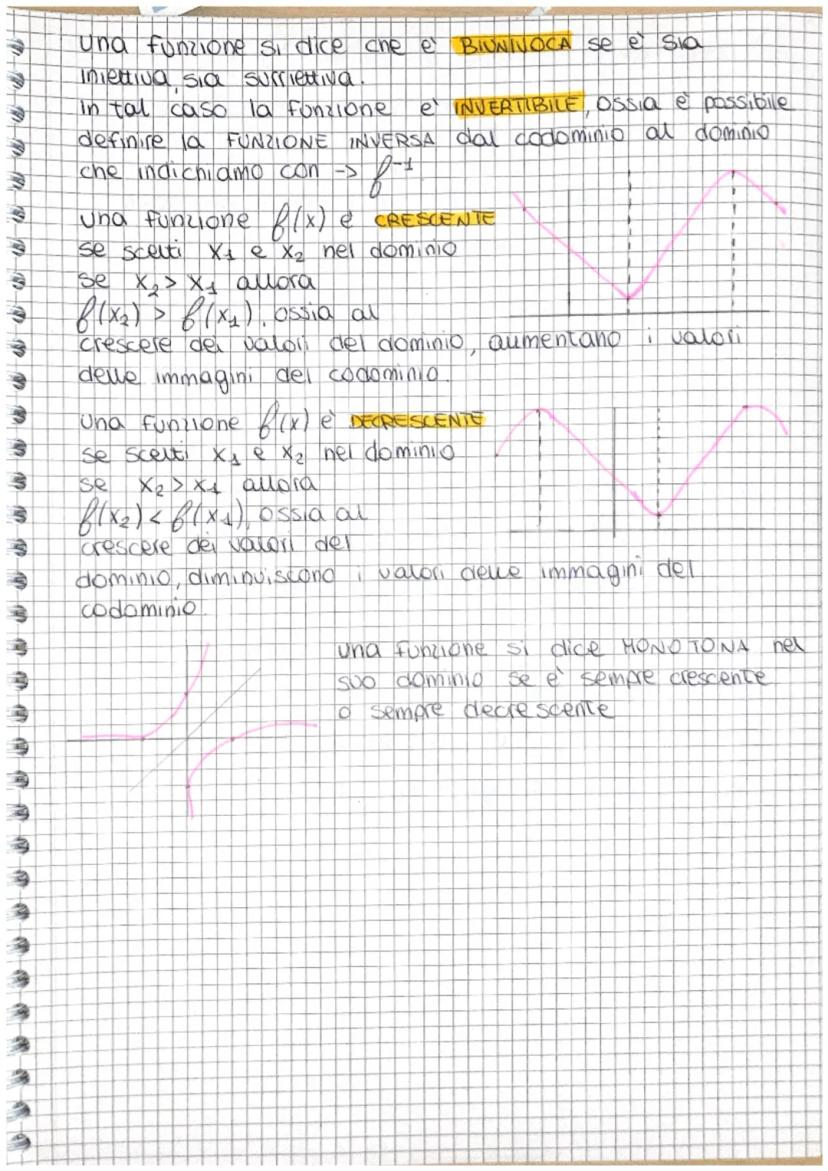 una funzione si dice che e' BIUNIVOCA se e' sia
iniettiva, sia suriettiva.
in tal caso la funzione e' INVERTIBILE, ossia è possibile
definire la FUNZIONE INVERSA dal codominio al dominio
che indichiamo con -> f⁻¹
una funzione f(x) e' CRESCENTE
se scelti x₁ e x₂ nel dominio
se x₂ > x₁ allora
f(x₂) > f(x₁), ossia al
crescere dei valori del dominio, aumentano i valori
delle immagini del codominio.
una funzione f(x) e' DECRESCENTE
se scelti x₁ e x₂ nel dominio
se x₂ > x₁ allora
f(x₂) < f(x₁), ossia al
crescere dei valori del
dominio, diminuiscono i valori delle immagini del
codominio.
una funzione si dice MONOTONA nel
suo dominio se e' sempre crescente
o sempre decrescente